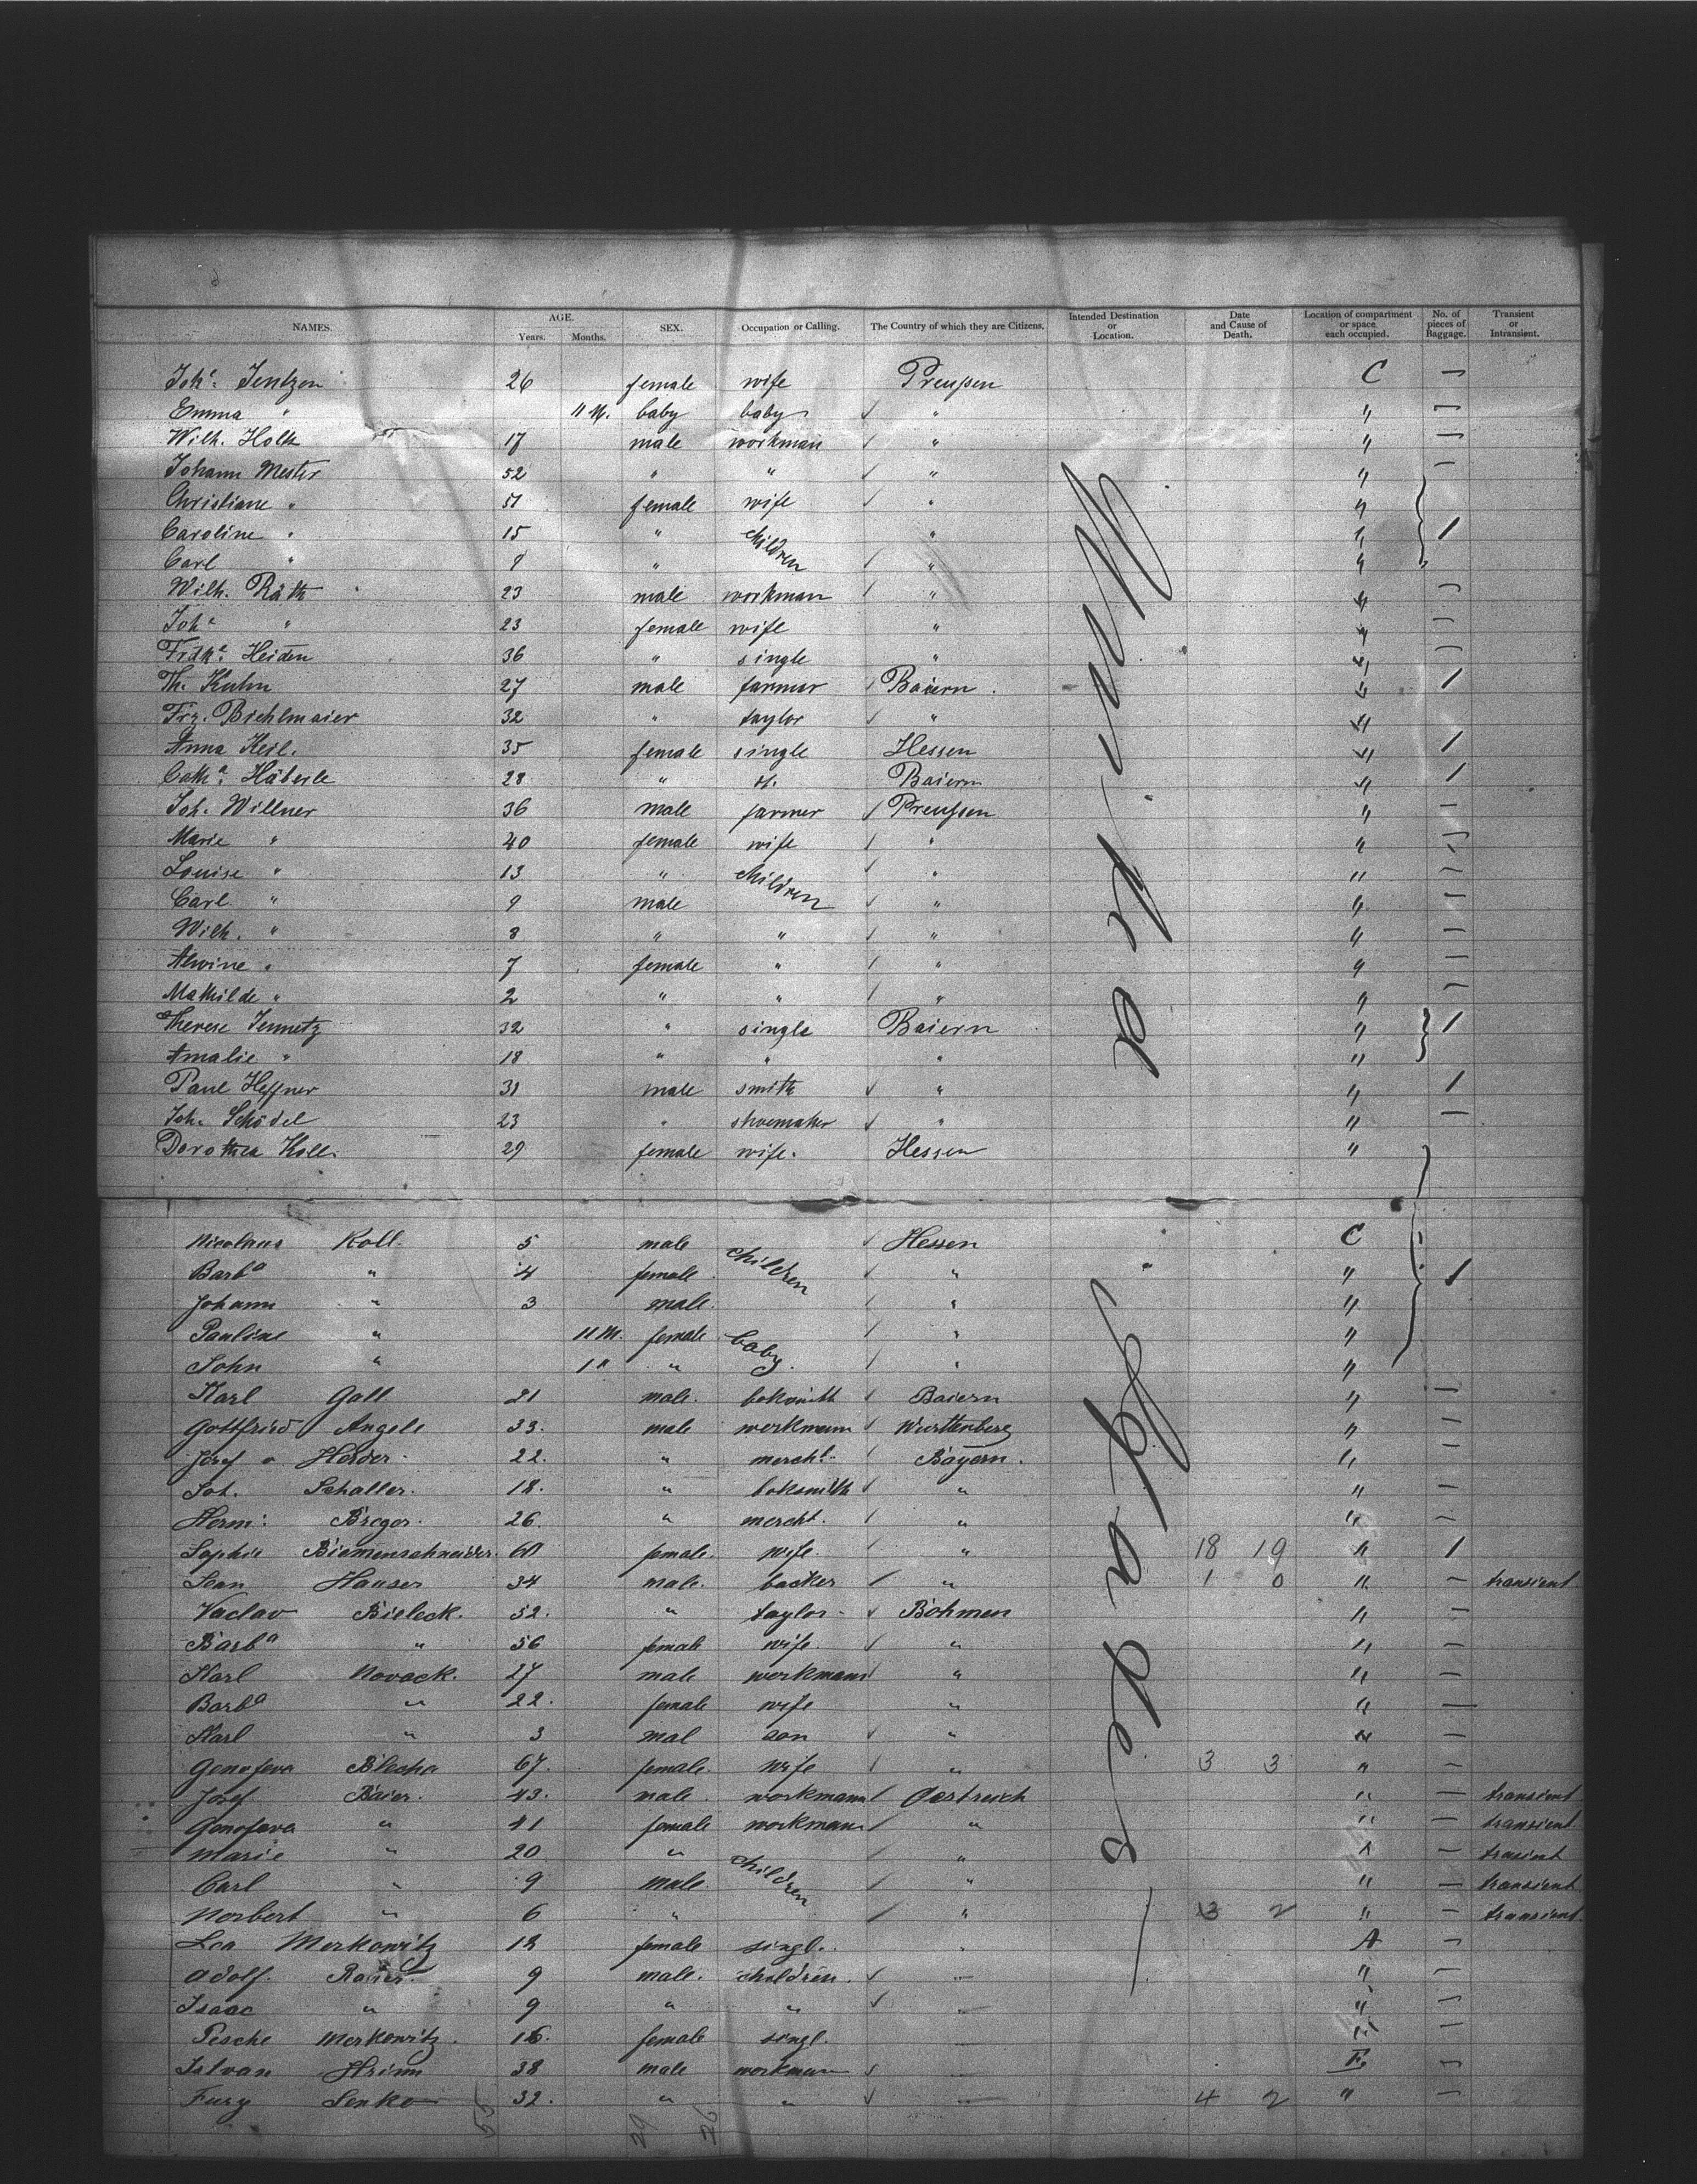 NAMES. AGE. Years. Months. SEX. Occupation or Calling. The Country of which they are Citizens. Intended Destination or Location. Date and Cause of Death. Location of compartment or space each occupied. No. of pieces of Baggage. Transient or Intransient.
Joha. Jentzen 26 female wife Preußen C —
Emma " 11 M. baby baby " " —
Wilh. Holk 17 male workman " " —
Johann Mester 52 " " " " —
Christiane " 51 female wife " "
Caroline " 15 " children " " 1
Carl " 9 " " "
Wilh. Räth 23 male workman " " —
Joha " 23 female wife " " —
Frdka. Heiden 36 " single " " —
Th. Kuhn 27 male farmer Baiern. " 1
Frz. Biehlmaier 32 " taylor " "
Anna Keil. 35 female single Hessen " 1
Catha. Häberle 28 " Baiern " 1
Joh. Willner 36 male farmer Preußen " —
Marie " 40 female wife " " —
Louise " 13 " children " " —
Carl " 9 male " " —
Wilh. " 8 " " " " —
Alwine " 7 female " " " —
Mathilde " 2 " " " " —
Therese Jennetz 32 " single Baiern " 1
Amalie " 18 " " " "
Paul Heffner 31 male smith " " 1
Joh. Schödel 23 " shoemaker " " —
Dorothea Koll. 29 female wife. Hessen "
Nicolaus Koll. 5 male children Hessen C
Barba " 4 female " " 1
Johann " 3 male. " "
Pauline " 11 M. female baby. " "
John " 1 " " " "
Karl Gall 21 male. Baiern " —
Gottfried Angele 33. male workmann Württenberg " —
Josef Herder. 22. " mercht. Bayern. " —
Joh. Schaller. 18. " " " —
Herm: Breger. 26. " mercht. " " —
Sophie Biemenschneider. 60 female. wife. " 18 19 " 1
Jean Hauser 34 male. backer " 1 0 " — transient
Vaclav Bieleck. 52. " taylor. Böhmen " —
Barba " 56 female wife. " " —
Karl Novack. 27 male workmann " " —
Barba " 22. female wife " " —
Karl " 3 mal son " " —
Genofeva Blecha 67. female. wife " 3 3 " —
Josef Baier. 43. male. workmann Oestreich " — transient
Genofeva " 41 female workmann " " — transient
Marie " 20 " children " " — trasient
Carl " 9 male " " — transient
Norbert " 6 " " 3 2 " — transient
Lea Merkowitz 18 female singl. " A —
Adolf. 9 male. children. " " —
Isaac " 9 " " " " —
Pesche Merkowitz. 16. female singl. " —
Istvan Hrinn 38 male workman F. —
Senko 32. " " 4 2 " —
55 29 26